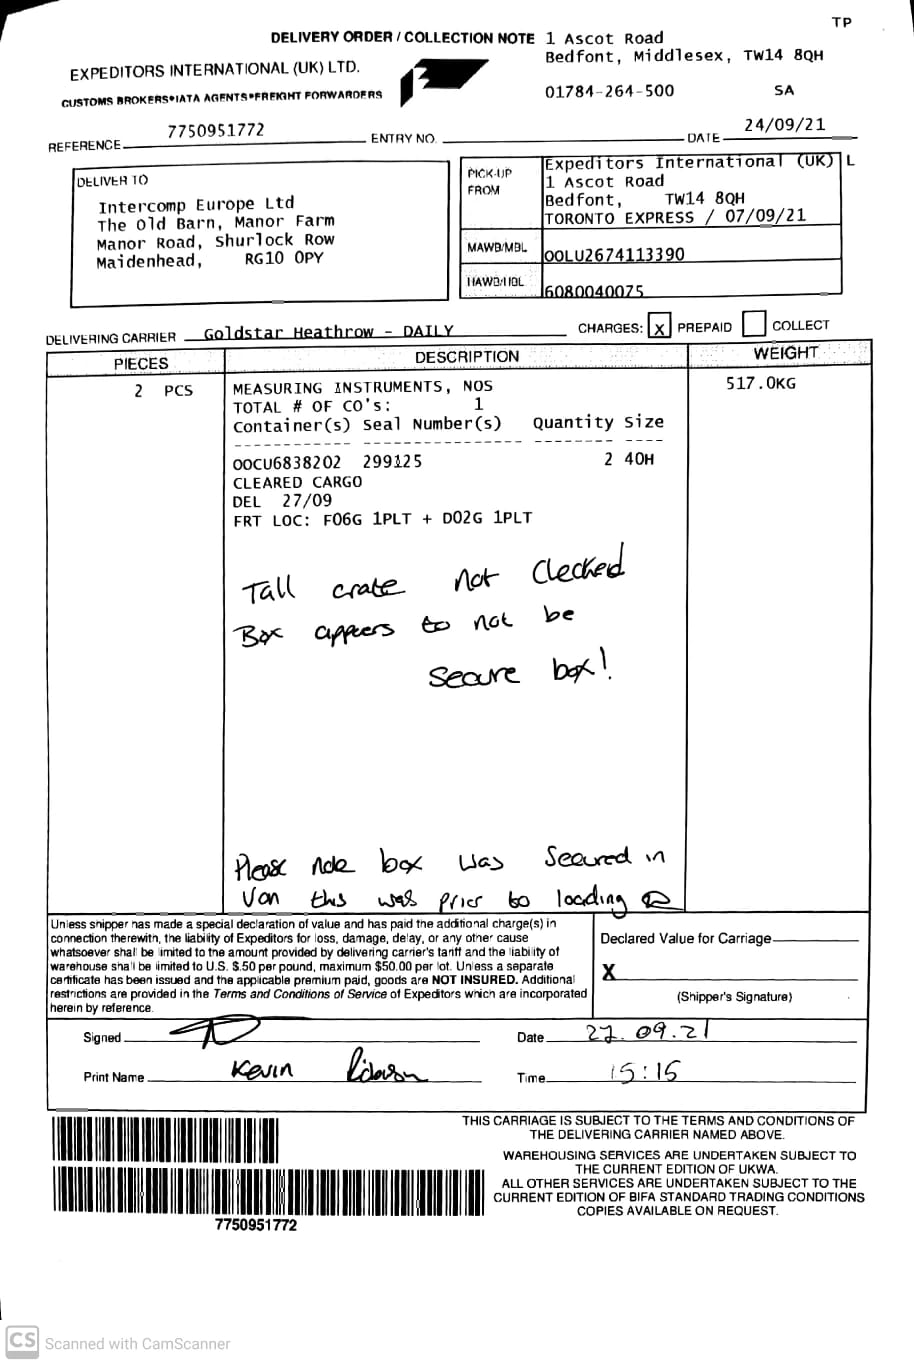 TP
DELIVERY ORDER / COLLECTION NOTE 1 Ascot Road
Bedfont, Middlesex, TW14 8QH
EXPEDITORS INTERNATIONAL (UK) LTD.
CUSTOMS BROKERS•IATA AGENTS•FREIGHT FORWARDERS
01784-264-500 SA
REFERENCE 7750951772 ENTRY NO. DATE 24/09/21
DELIVER TO
Intercomp Europe Ltd
The Old Barn, Manor Farm
Manor Road, Shurlock Row
Maidenhead, RG10 0PY
PICK-UP FROM
Expeditors International (UK) L
1 Ascot Road
Bedfont, TW14 8QH
TORONTO EXPRESS / 07/09/21
MAWB/MBL OOLU2674113390
HAWB/HBL 6080040075
DELIVERING CARRIER Goldstar Heathrow - DAILY CHARGES: X PREPAID COLLECT
PIECES DESCRIPTION WEIGHT
2 PCS MEASURING INSTRUMENTS, NOS 517.0KG
TOTAL # OF CO's: 1
Container(s) Seal Number(s) Quantity Size
------------ ---------------- -------- ----
OOCU6838202 299125 2 40H
CLEARED CARGO
DEL 27/09
FRT LOC: F06G 1PLT + D02G 1PLT
Tall crate not Checked
Box appears to not be
Secure box!
Please note box was Secured in
Van this was prior to loading
Unless shipper has made a special declaration of value and has paid the additional charge(s) in
connection therewith, the liability of Expeditors for loss, damage, delay, or any other cause
whatsoever shall be limited to the amount provided by delivering carrier's tariff and the liability of
warehouse shall be limited to U.S. $.50 per pound, maximum $50.00 per lot. Unless a separate
certificate has been issued and the applicable premium paid, goods are NOT INSURED. Additional
restrictions are provided in the Terms and Conditions of Service of Expeditors which are incorporated
herein by reference.
Declared Value for Carriage
X
(Shipper's Signature)
Signed Date 27.09.21
Print Name Kevin Time 15:15
THIS CARRIAGE IS SUBJECT TO THE TERMS AND CONDITIONS OF
THE DELIVERING CARRIER NAMED ABOVE.
WAREHOUSING SERVICES ARE UNDERTAKEN SUBJECT TO
THE CURRENT EDITION OF UKWA.
ALL OTHER SERVICES ARE UNDERTAKEN SUBJECT TO THE
CURRENT EDITION OF BIFA STANDARD TRADING CONDITIONS
COPIES AVAILABLE ON REQUEST.
7750951772
CS Scanned with CamScanner